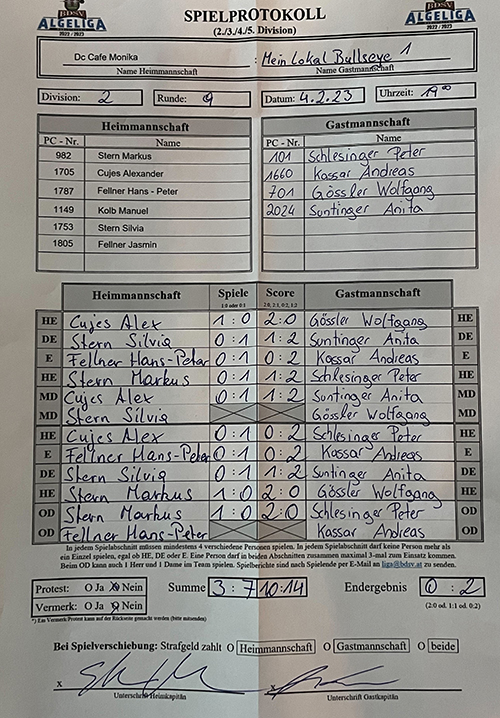 BDSV SPIELPROTOKOLL BDSV
ALGELIGA (2./3./4./5. Division) ALGELIGA
2022 / 2023 2022 / 2023
Dc Cafe Monika : Mein Lokal Bullseye 1
Name Heimmannschaft Name Gastmannschaft
Division: 2 Runde: 9 Datum: 4.2.23 Uhrzeit: 19°°
Heimmannschaft Gastmannschaft
PC - Nr. Name PC - Nr. Name
982 Stern Markus 101 Schlesinger Peter
1705 Cujes Alexander 1660 Kassar Andreas
1787 Fellner Hans - Peter 701 Gössler Wolfgang
1149 Kolb Manuel 2024 Suntinger Anita
1753 Stern Silvia
1805 Fellner Jasmin
Heimmannschaft Spiele Score Gastmannschaft
1:0 oder 0:1 2:0, 2:1, 0:2, 1:2
HE Cujes Alex 1 : 0 2 : 0 Gössler Wolfgang HE
DE Stern Silvia 0 : 1 1 : 2 Suntinger Anita DE
E Fellner Hans-Peter 0 : 1 0 : 2 Kassar Andreas E
HE Stern Markus 0 : 1 1 : 2 Schlesinger Peter HE
MD Cujes Alex 0 : 1 1 : 2 Suntinger Anita MD
MD Stern Silvia Gössler Wolfgang MD
HE Cujes Alex 0 : 1 0 : 2 Schlesinger Peter HE
E Fellner Hans-Peter 0 : 1 0 : 2 Kassar Andreas E
DE Stern Silvia 0 : 1 1 : 2 Suntinger Anita DE
HE Stern Markus 1 : 0 2 : 0 Gössler Wolfgang HE
OD Stern Markus 1 : 0 2 : 0 Schlesinger Peter OD
OD Fellner Hans-Peter Kassar Andreas OD
In jedem Spielabschnitt müssen mindestens 4 verschiedene Personen spielen. In jedem Spielabschnitt darf keine Person mehr als
ein Einzel spielen, egal ob HE, DE oder E. Eine Person darf in beiden Abschnitten zusammen maximal 3-mal zum Einsatz kommen.
Beim OD kann auch 1 Herr und 1 Dame im Team spielen. Spielberichte sind nach Spielende per E-Mail an liga@bdsv.at zu senden.
Protest: O Ja O Nein Summe 3 : 7 10 : 14 Endergebnis 0 : 2
Vermerk: O Ja O Nein (2:0 od. 1:1 od. 0:2)
*) Ein Vermerk/Protest kann auf der Rückseite gemacht werden (bitte mitsenden)
Bei Spielverschiebung: Strafgeld zahlt O Heimmannschaft O Gastmannschaft O beide
x x
Unterschrift Heimkapitän Unterschrift Gastkapitän